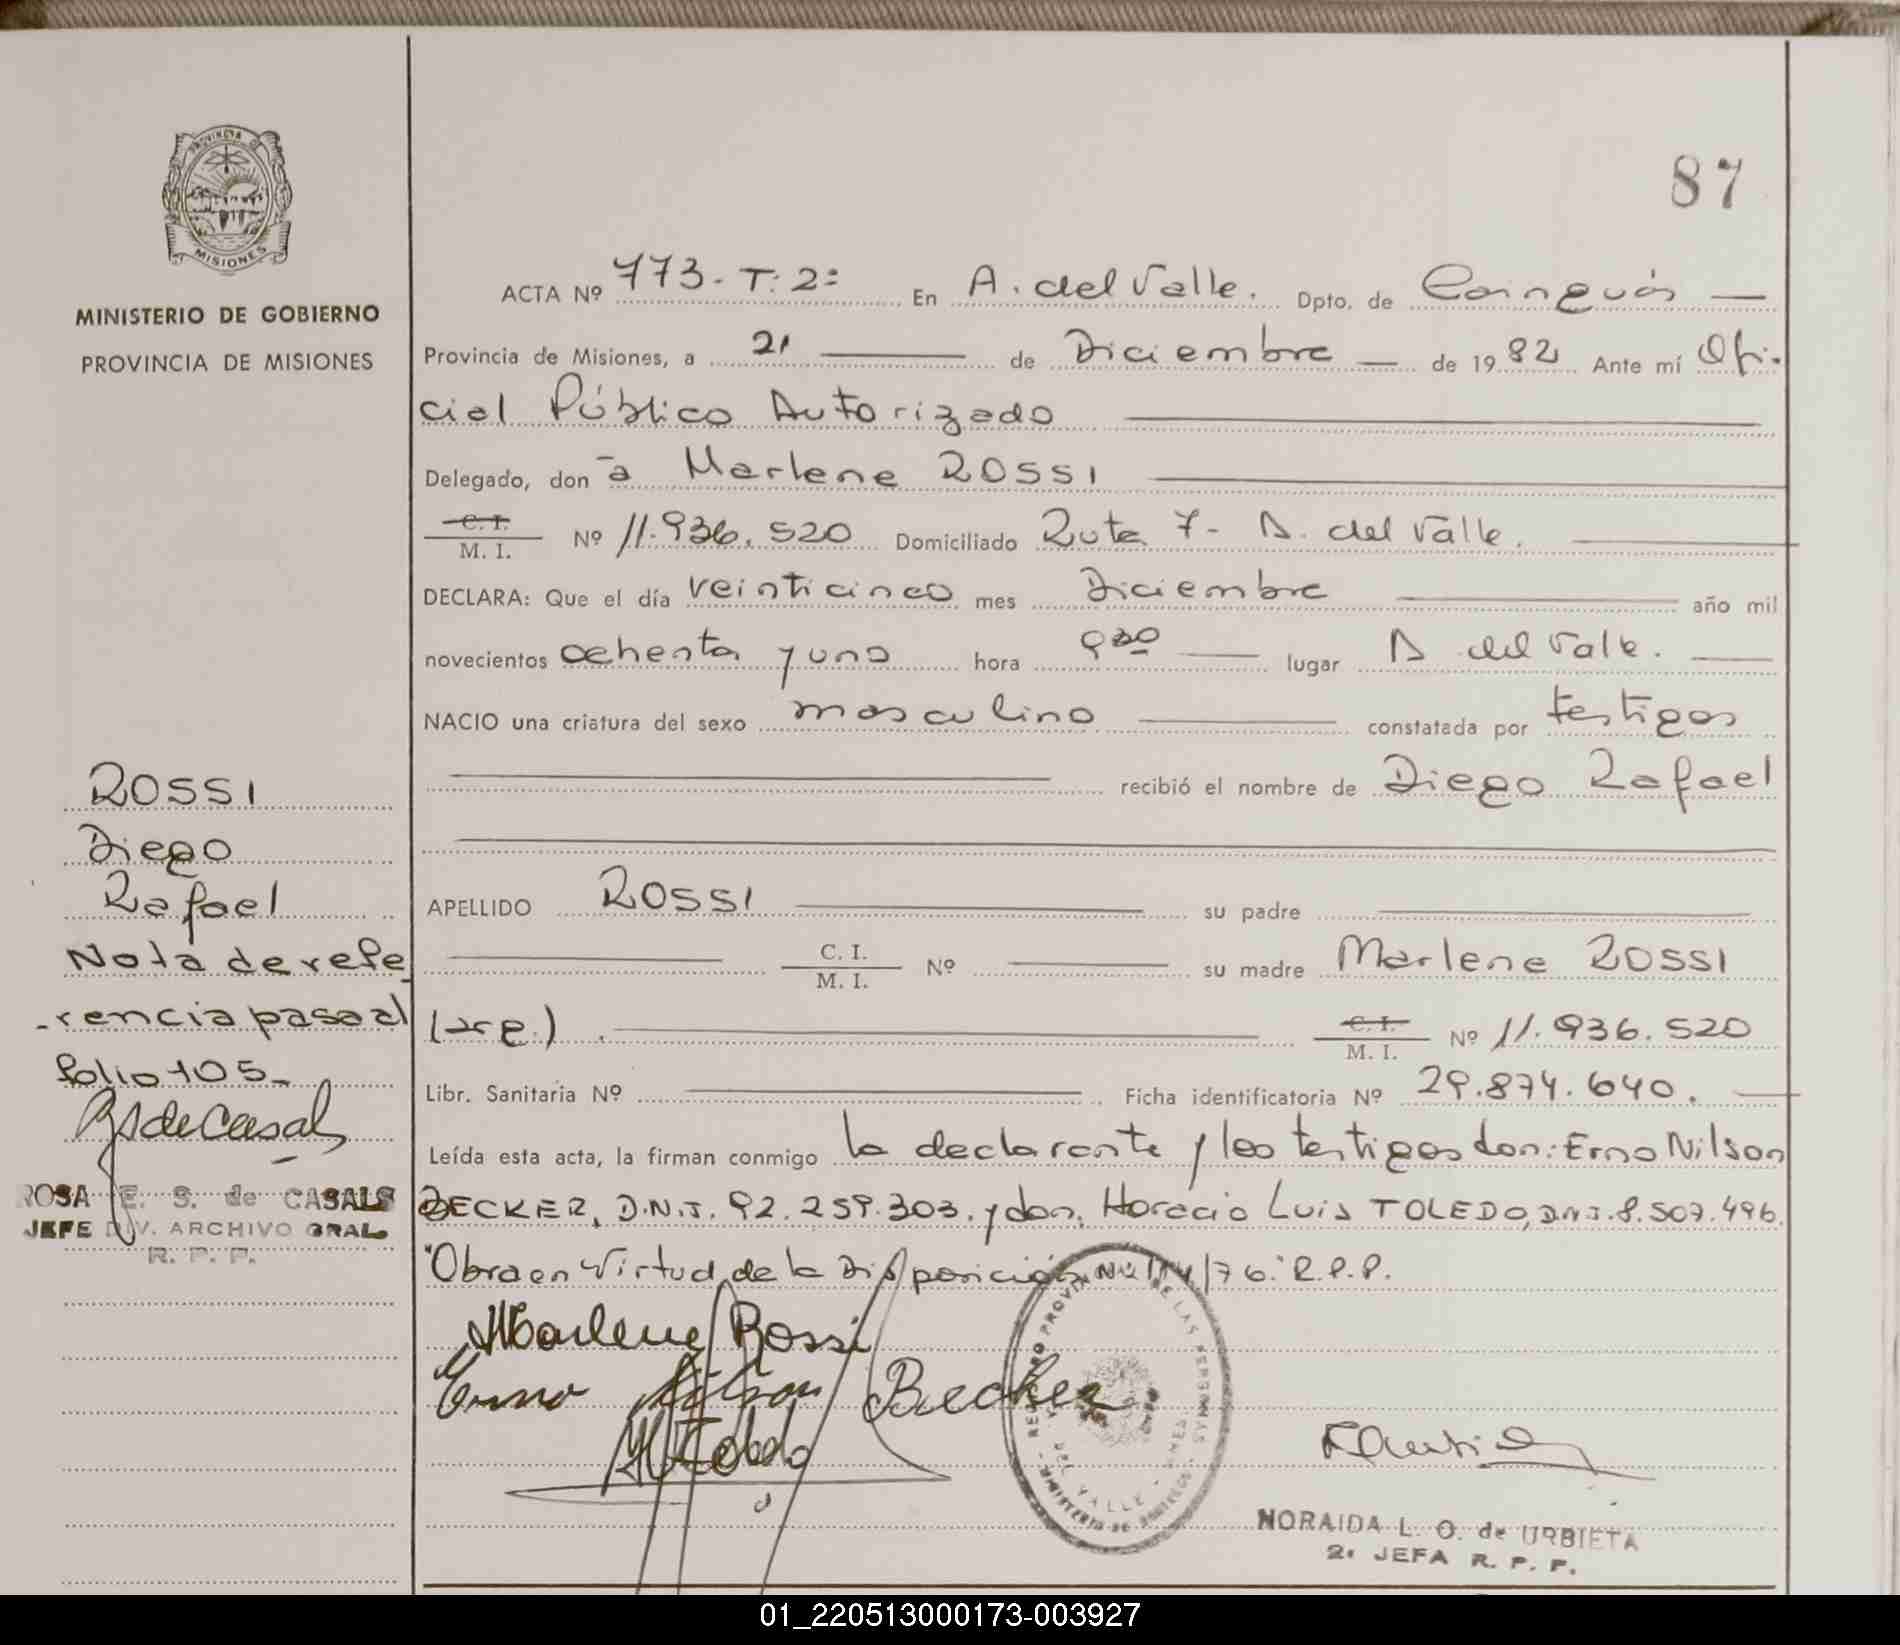 PROVINCIA DE
MISIONES
MINISTERIO DE GOBIERNO
PROVINCIA DE MISIONES
87
ACTA Nº 773- T: 2º En A. del Valle. Dpto. de Cainguás
Provincia de Misiones, a 21 de Diciembre de 1982 Ante mí Ofi-
cial Público Autorizado
Delegado, don a Marlene ROSSI
C. I.
M. I. Nº 11.936.520 Domiciliado Ruta 7- A. del Valle.
DECLARA: Que el día veinticinco mes Diciembre año mil
novecientos ochenta y uno hora 9 30 lugar A del Valle.
NACIO una criatura del sexo masculino constatada por testigos
recibió el nombre de Diego Rafael
APELLIDO ROSSI su padre
C. I.
M. I. Nº su madre Marlene ROSSI
(arg.) C. I.
M. I. Nº 11.936.520
Libr. Sanitaria Nº Ficha identificatoria Nº 29.874.640.
Leída esta acta, la firman conmigo la declarante y los testigos don: Erno Nilson
BECKER, D.N.I. 92.259.303. y don. Horacio Luis TOLEDO, D.N.I. 8.507.496.
"Obra en Virtud de la Disposición Nº 114/76." R.P.P.
Marlene Rossi
Erno Nilson Becker
HLToledo
REGISTRO PROVINCIAL DE LAS PERSONAS
DEL VALLE - MNES.
MINISTERIO DE GOBIERNO
NORAIDA L. O. de URBIETA
2ª JEFA R. P. P.
ROSSI
Diego
Rafael
Nota de refe
-rencia pasa al
folio 105-
RSdeCasals
ROSA E. S. de CASALS
JEFE DIV. ARCHIVO GRAL.
R. P. P.
01_220513000173-003927